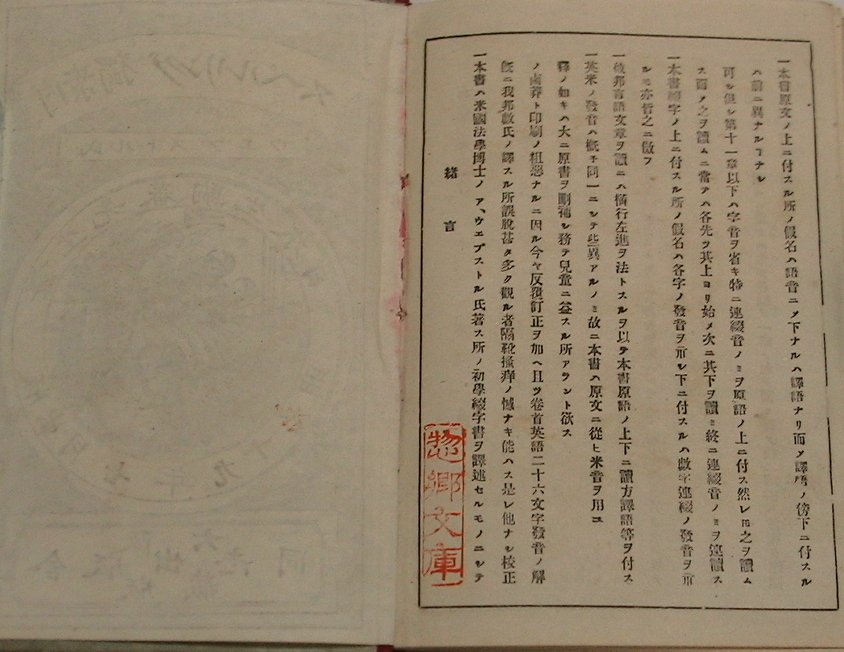 緒言
一本書ハ米國法學博士ノア、ウェブストル氏著ス所ノ初學綴字書ヲ譯述セルモノニシテ
既ニ我邦數氏ノ譯スル所誤脱甚タ多ク觀ル者隔靴搔痒ノ憾ナキ能ハス是レ他ナシ校正
ノ鹵莽ト印刷ノ粗惡ナルニ因ル今ヤ反覆訂正ヲ加ヘ且ツ卷首英語二十六文字發音ノ解
釋ノ如キハ大ニ原書ヲ刪補シ務テ兒童ニ益スル所アラント欲ス
一英米ノ發音ハ概子同一ニシテ些異アルノミ故ニ本書ハ原文ニ從ヒ米音ヲ用ユ
一彼邦言語文章ヲ讀ニハ橫行左進ヲ法トスルヲ以テ本書原語ノ上下ニ讀方譯語等ヲ付ス
ルモ亦皆之ニ倣フ
一本書綴字ノ上ニ付スル所ノ假名ハ各字ノ發音ヲ示シ下ニ付スルハ數字連綴ノ發音ヲ示
ス而メ之ヲ讀ムニ當テハ各先ツ其上ヨリ始メ次ニ其下ヲ讀ミ終ニ連綴音ノミヲ連讀ス
可シ但シ第十一章以下ハ字音ヲ省キ特ニ連綴音ノミヲ原語ノ上ニ付ス然レ𪜈之ヲ讀ム
ハ前ニ異ナルヿナシ
一本書原文ノ上ニ付スル所ノ假名ハ語音ニメ下ナルハ譯語ナリ而メ譯語ノ傍下ニ付スル
惣郷文庫